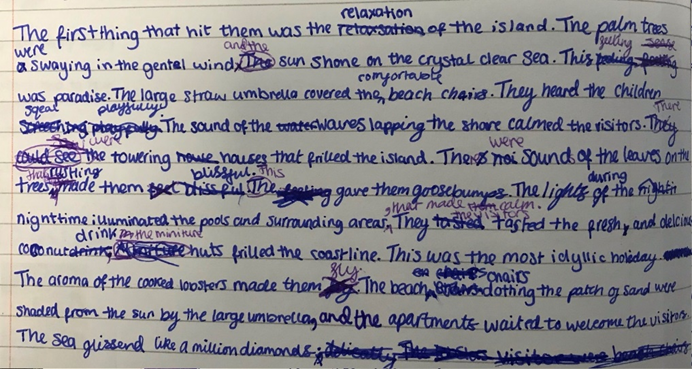 relaxation
The first thing that hit them was the of the island. The palm trees
were and the feeling
swaying in the gentel wind, sun shone on the crystal clear sea. This
comfortable
was paradise. The large straw umbrella covered the beach chairs. They heard the children
sqeal playfully There
The sound of the waves lapping the shore calmed the visitors.
were were
the towering houses that frilled the island. The sound of the leaves on the
rustling blissful. This during
trees, made them gave them goosebumps. The lights of the
that made them calm.
nighttime illuminated the pools and surrounding areas, They the visitors tasted the fresh, and delicious
drink in the miniture
coconut huts frilled the coastline. This was the most idyllic holiday.
sly. chairs
The aroma of the cooked lobsters made them The beach, clothing the patch of sand were
shaded from the sun by the large umbrella, and the apartments waited to welcome the visitors.
The sea glissend like a million diamonds